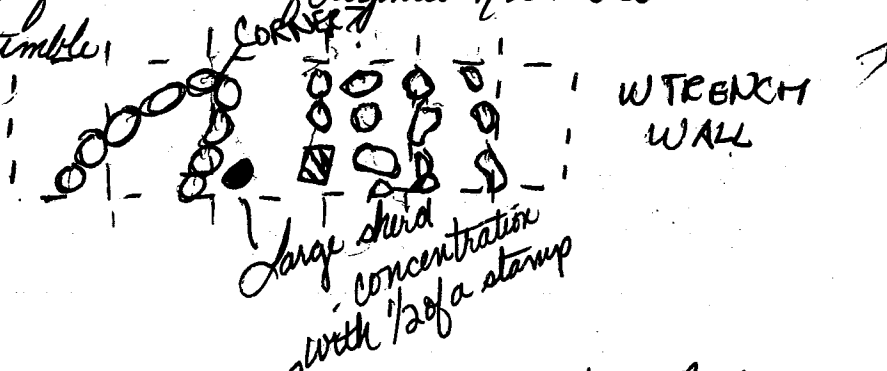 CORNER?
W TRENCH
WALL
Large sherd
concentration
with 1/2 of a stamp